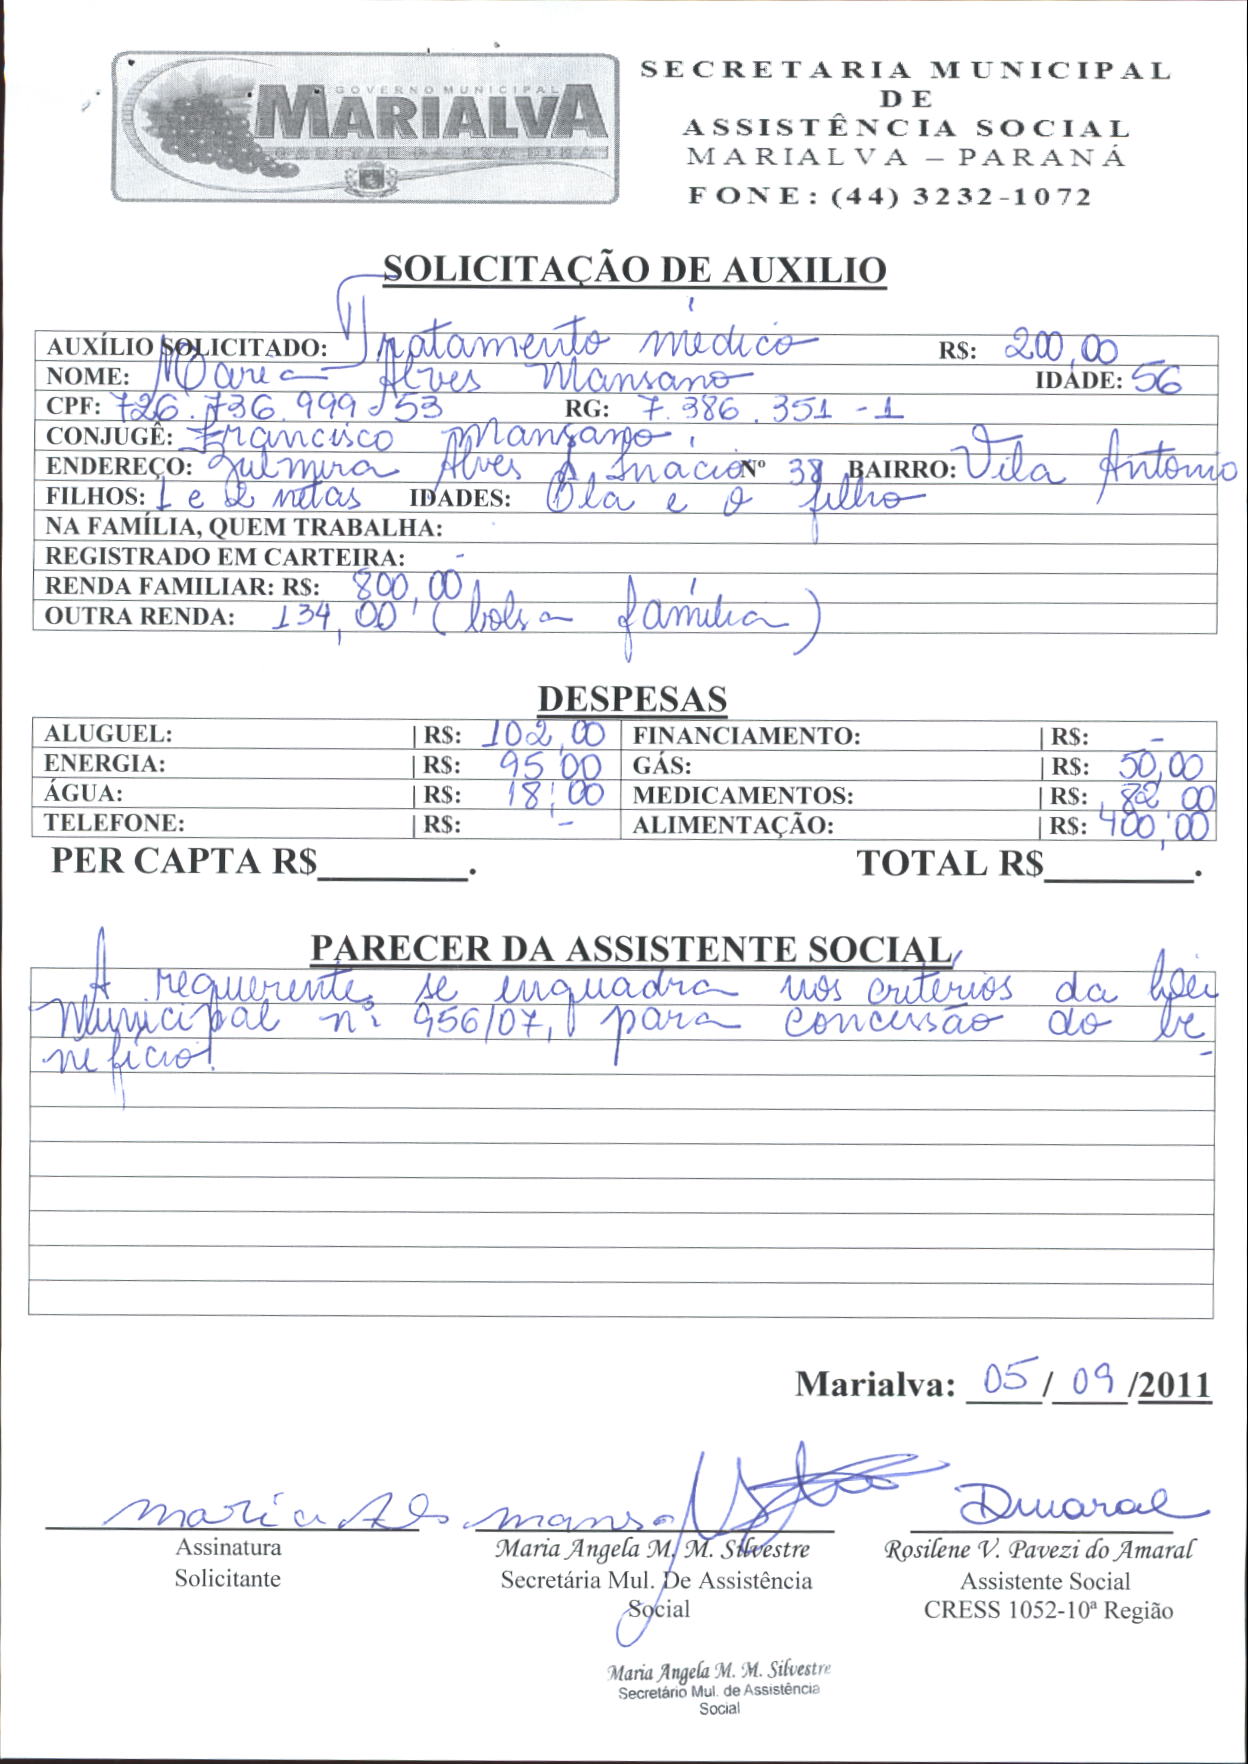 GOVERNO MUNICIPAL
MARIALVA
CAPITAL DA UVA FINA
SECRETARIA MUNICIPAL
DE
ASSISTÊNCIA SOCIAL
MARIALVA – PARANÁ
FONE: (44) 3232-1072
SOLICITAÇÃO DE AUXILIO
AUXÍLIO SOLICITADO: Tratamento médico R$: 200,00
NOME: Maria Alves Mansano IDADE: 56
CPF: 726.736.999-53 RG: 7.386.351-1
CONJUGÊ: Francisco Mansano
ENDEREÇO: Zulmira Alves S. Inacio Nº 38 BAIRRO: Vila Antonio
FILHOS: 1 e 2 netas IDADES:
NA FAMÍLIA, QUEM TRABALHA: Ela e o filho
REGISTRADO EM CARTEIRA: -
RENDA FAMILIAR: R$: 800,00
OUTRA RENDA: 134,00 (bolsa família)
DESPESAS
ALUGUEL: | R$: 102,00 FINANCIAMENTO: | R$: -
ENERGIA: | R$: 95,00 GÁS: | R$: 50,00
ÁGUA: | R$: 18,00 MEDICAMENTOS: | R$: 82,00
TELEFONE: | R$: - ALIMENTAÇÃO: | R$: 400,00
PER CAPTA R$________. TOTAL R$________.
PARECER DA ASSISTENTE SOCIAL
A requerente se enquadra nos critérios da Lei
Municipal nº 956/07, para concessão do be
nefício.
Marialva: 05/09/2011
Maria Als manso Dmaral
Assinatura Maria Angela M. M. Silvestre Rosilene V. Pavezi do Amaral
Solicitante Secretária Mul. De Assistência Assistente Social
Social CRESS 1052-10ª Região
Maria Angela M. M. Silvestre
Secretário Mul. de Assistência
Social